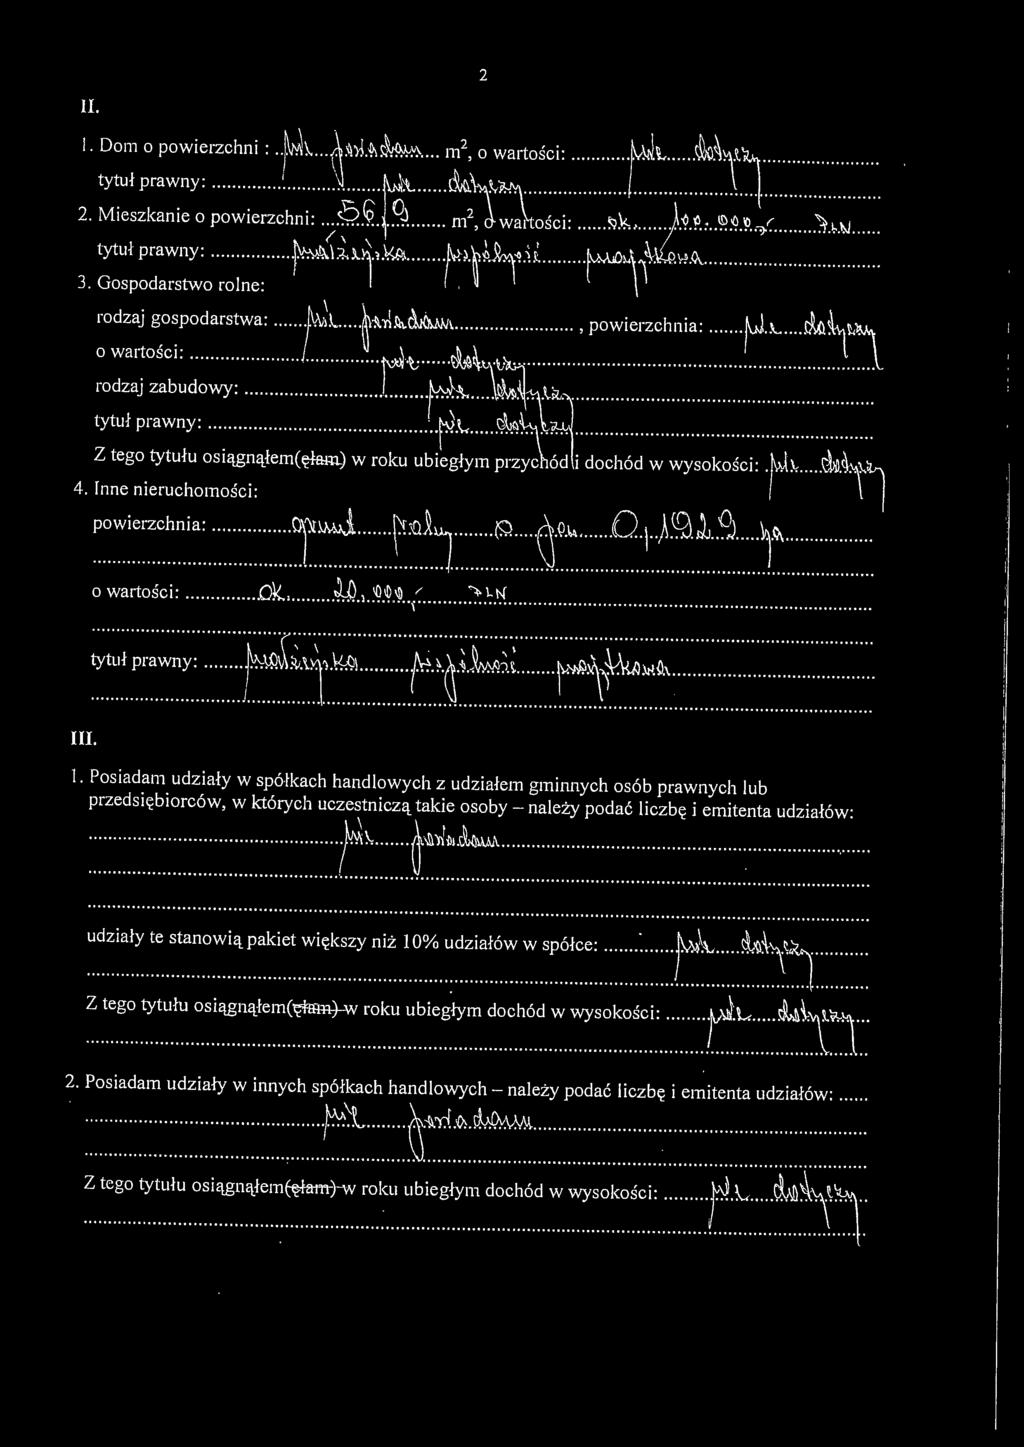 2
II.
1. Dom o powierzchni : ..nie posiadam... m², o wartości: ..........nie dotyczy..........
tytuł prawny: ..........nie dotyczy..........
2. Mieszkanie o powierzchni: ...56,9....... m², o wartości: ......ok. 100.000,- PLN......
tytuł prawny: ..........małżeńska wspólność majątkowa..........
3. Gospodarstwo rolne:
rodzaj gospodarstwa: ......nie posiadam...................., powierzchnia: ......nie dotyczy
o wartości: ..........nie dotyczy..........
rodzaj zabudowy: ..........nie dotyczy..........
tytuł prawny: ..........nie dotyczy..........
Z tego tytułu osiągnąłem(ęłam) w roku ubiegłym przychód i dochód w wysokości: .nie dotyczy
4. Inne nieruchomości:
powierzchnia: ..........grunt rolny o pow. 0,1929 ha..........
o wartości: ..........ok. 20.000,- PLN..........
tytuł prawny: ......małżeńska wspólność majątkowa..........
III.
1. Posiadam udziały w spółkach handlowych z udziałem gminnych osób prawnych lub
przedsiębiorców, w których uczestniczą takie osoby – należy podać liczbę i emitenta udziałów:
..........nie posiadam..........
udziały te stanowią pakiet większy niż 10% udziałów w spółce: ..........nie dotyczy..........
Z tego tytułu osiągnąłem(ęłam) w roku ubiegłym dochód w wysokości: ......nie dotyczy...
2. Posiadam udziały w innych spółkach handlowych – należy podać liczbę i emitenta udziałów: ......
..........nie posiadam..........
Z tego tytułu osiągnąłem(ęłam) w roku ubiegłym dochód w wysokości: ......nie dotyczy..